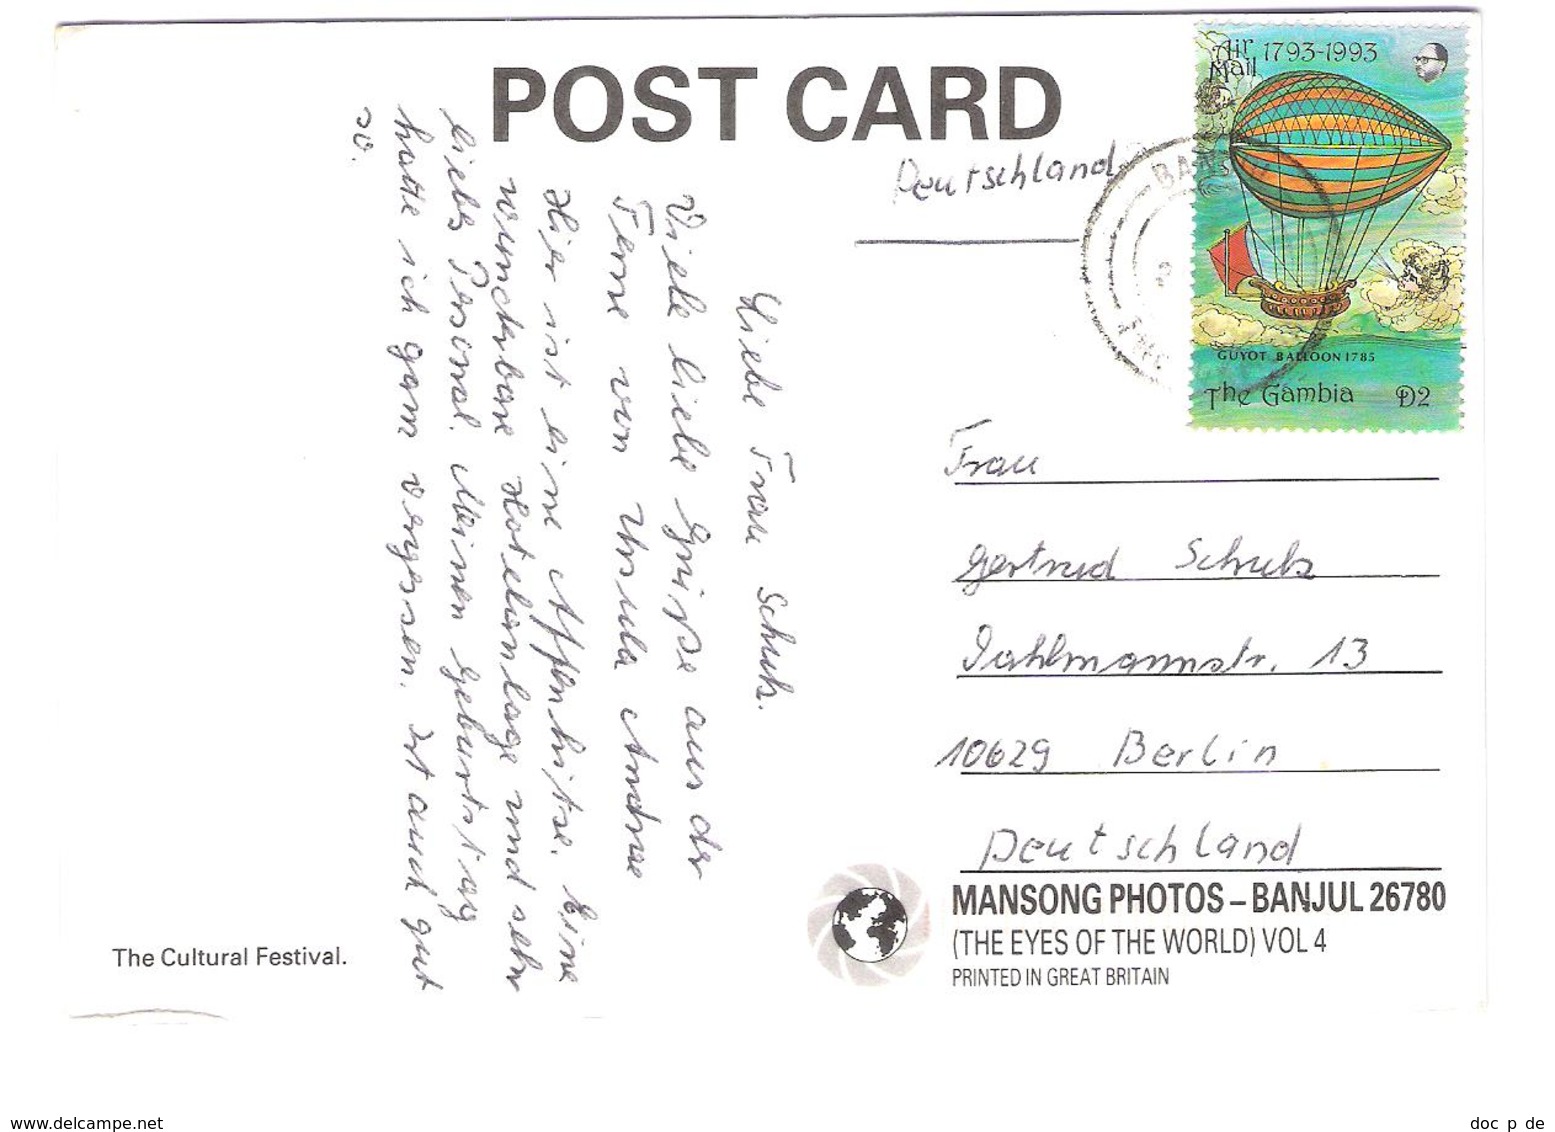 POST CARD
Air Mail 1793-1993
GUYOT BALLOON 1785
The Gambia D2
Deutschland
Liebe Frau Schulz.
Viele liebe Grüße aus der
Ferne von Ursula Andree
Hier ist eine Affenhitze. Eine
wunderbare Hotelanlage und sehr
liebes Personal. Meinen Geburtstag
hatte ich ganz vergessen. Ist auch gut
so.
Frau
Gertrud Schulz
Dahlmannstr. 13
10629 Berlin
Deutschland
The Cultural Festival.
MANSONG PHOTOS – BANJUL 26780
(THE EYES OF THE WORLD) VOL 4
PRINTED IN GREAT BRITAIN
www.delcampe.net
doc_p_de